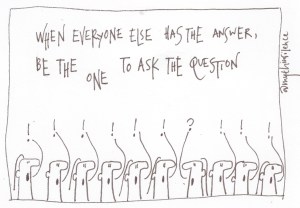 WHEN EVERYONE ELSE HAS THE ANSWER,
BE THE ONE TO ASK THE QUESTION
! ! ! ! ! ! ? ! ! !